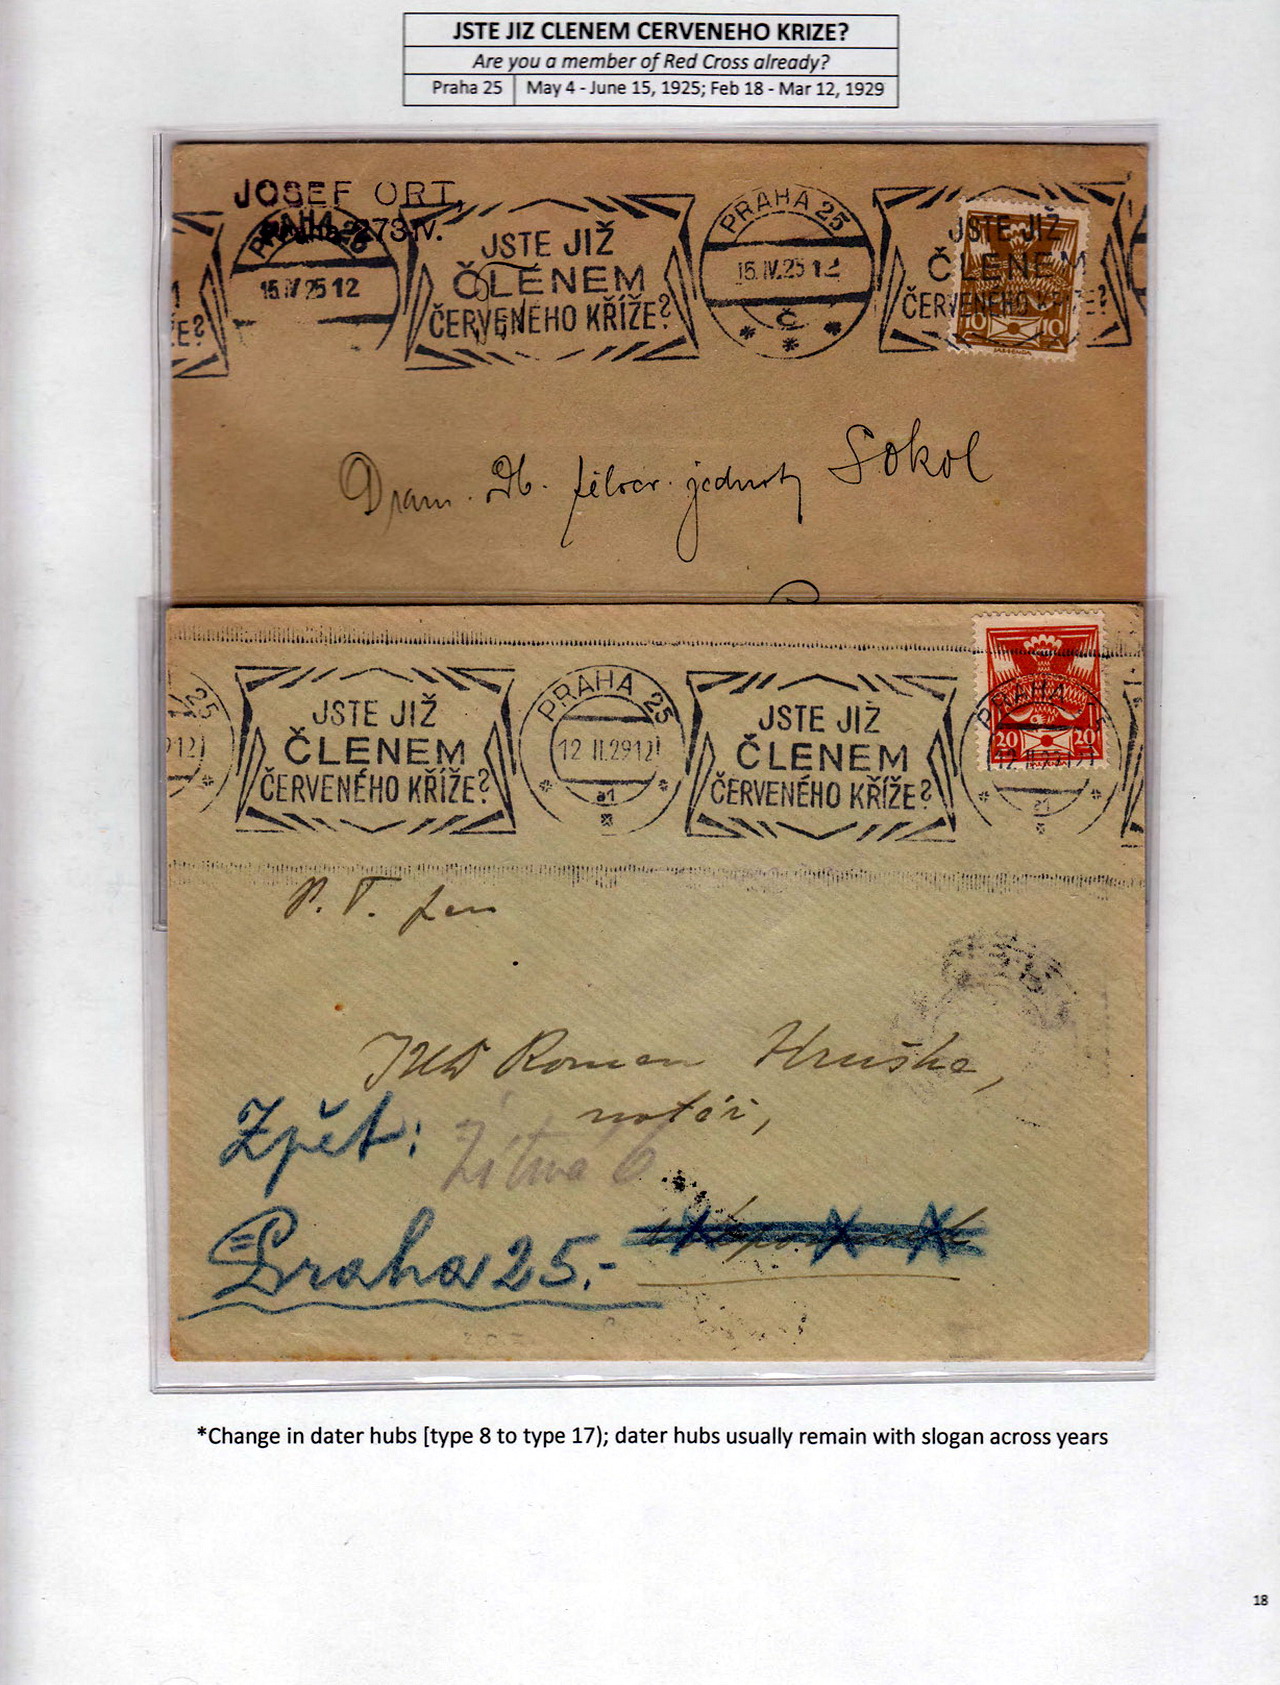 JSTE JIZ CLENEM CERVENEHO KRIZE?
Are you a member of Red Cross already?
Praha 25 May 4 - June 15, 1925; Feb 18 - Mar 12, 1929
JOSEF ORT,
273-IV.
PRAHA 25
15.IV.25 12
JSTE JIŽ
ČLENEM
ČERVENÉHO KŘÍŽE?
PRAHA 25
15.IV.25 12
č
JSTE JIŽ
ČLENEM
ČERVENÉHO KŘÍŽE?
10 10
Dram. jednoty Sokol
25
JSTE JIŽ
ČLENEM
ČERVENÉHO KŘÍŽE?
PRAHA 25
12.II.29 12
a1
JSTE JIŽ
ČLENEM
ČERVENÉHO KŘÍŽE?
PRAHA 25
12.II.29 12
a1
20 20
P. T. pan
JUD Roman Hruška,
notář,
Zpět:
Žitná 6
Praha 25.-
*Change in dater hubs [type 8 to type 17); dater hubs usually remain with slogan across years
18